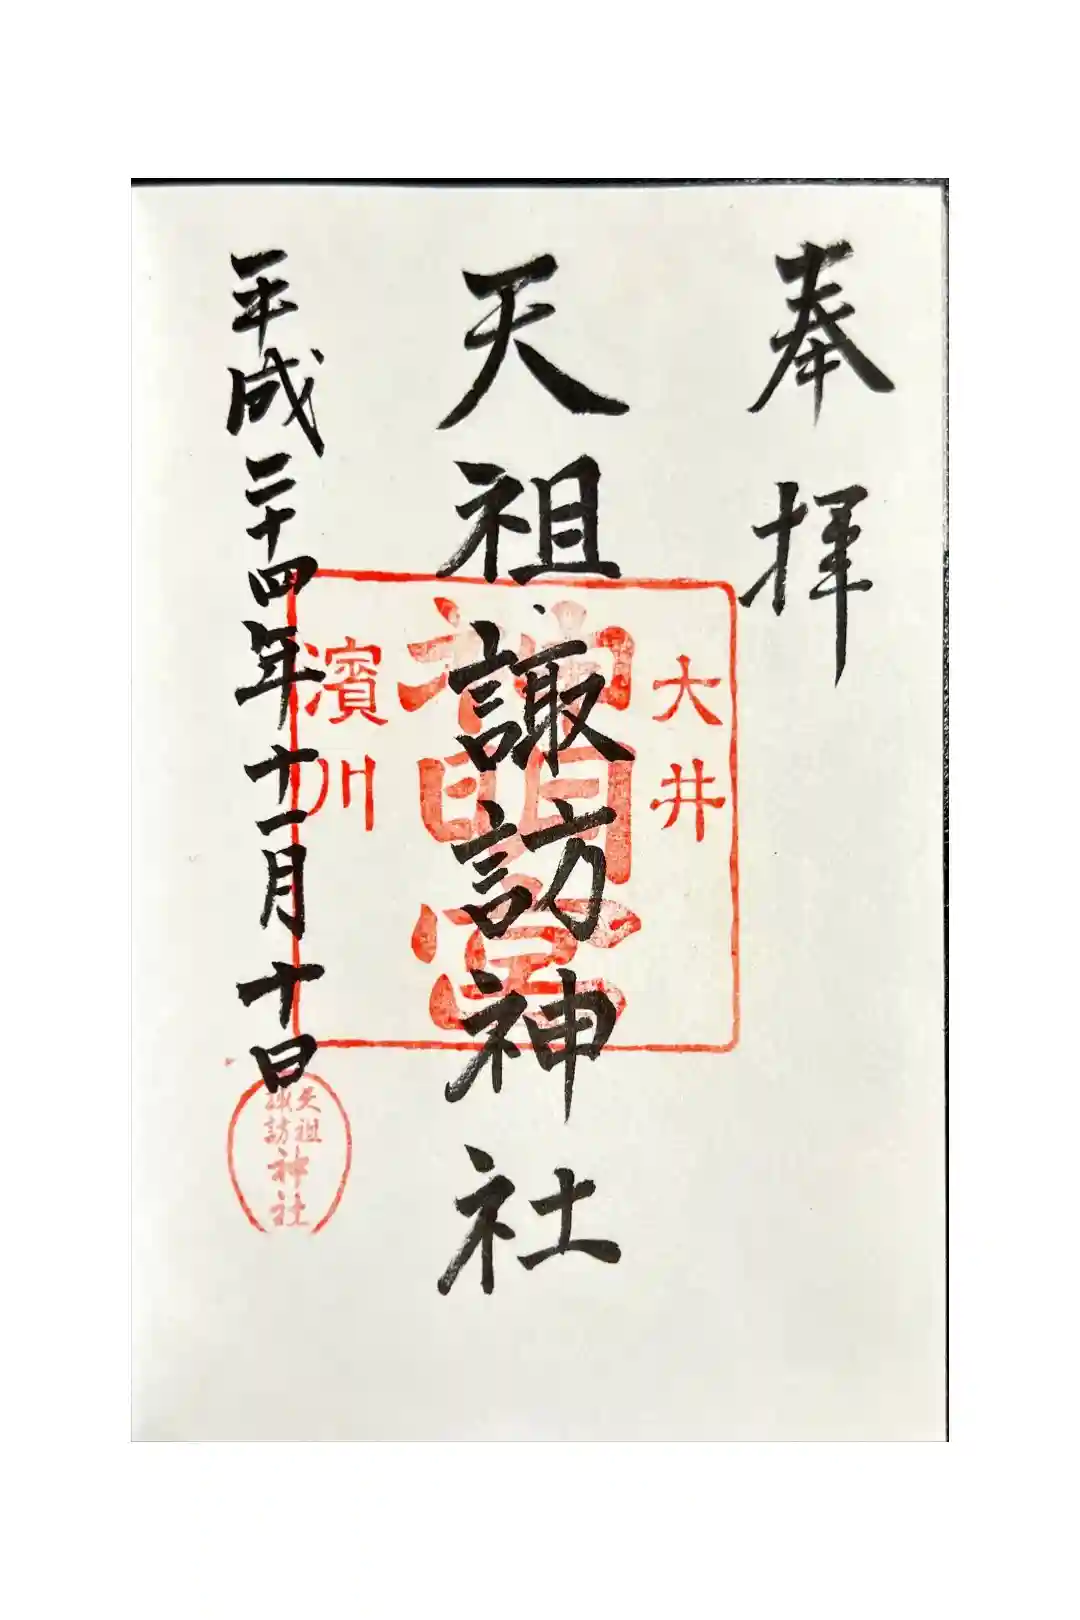 奉拝
天祖、諏訪神社
平成二十四年十一月十日
大井
神明宮
濱川
天祖
諏訪
神社